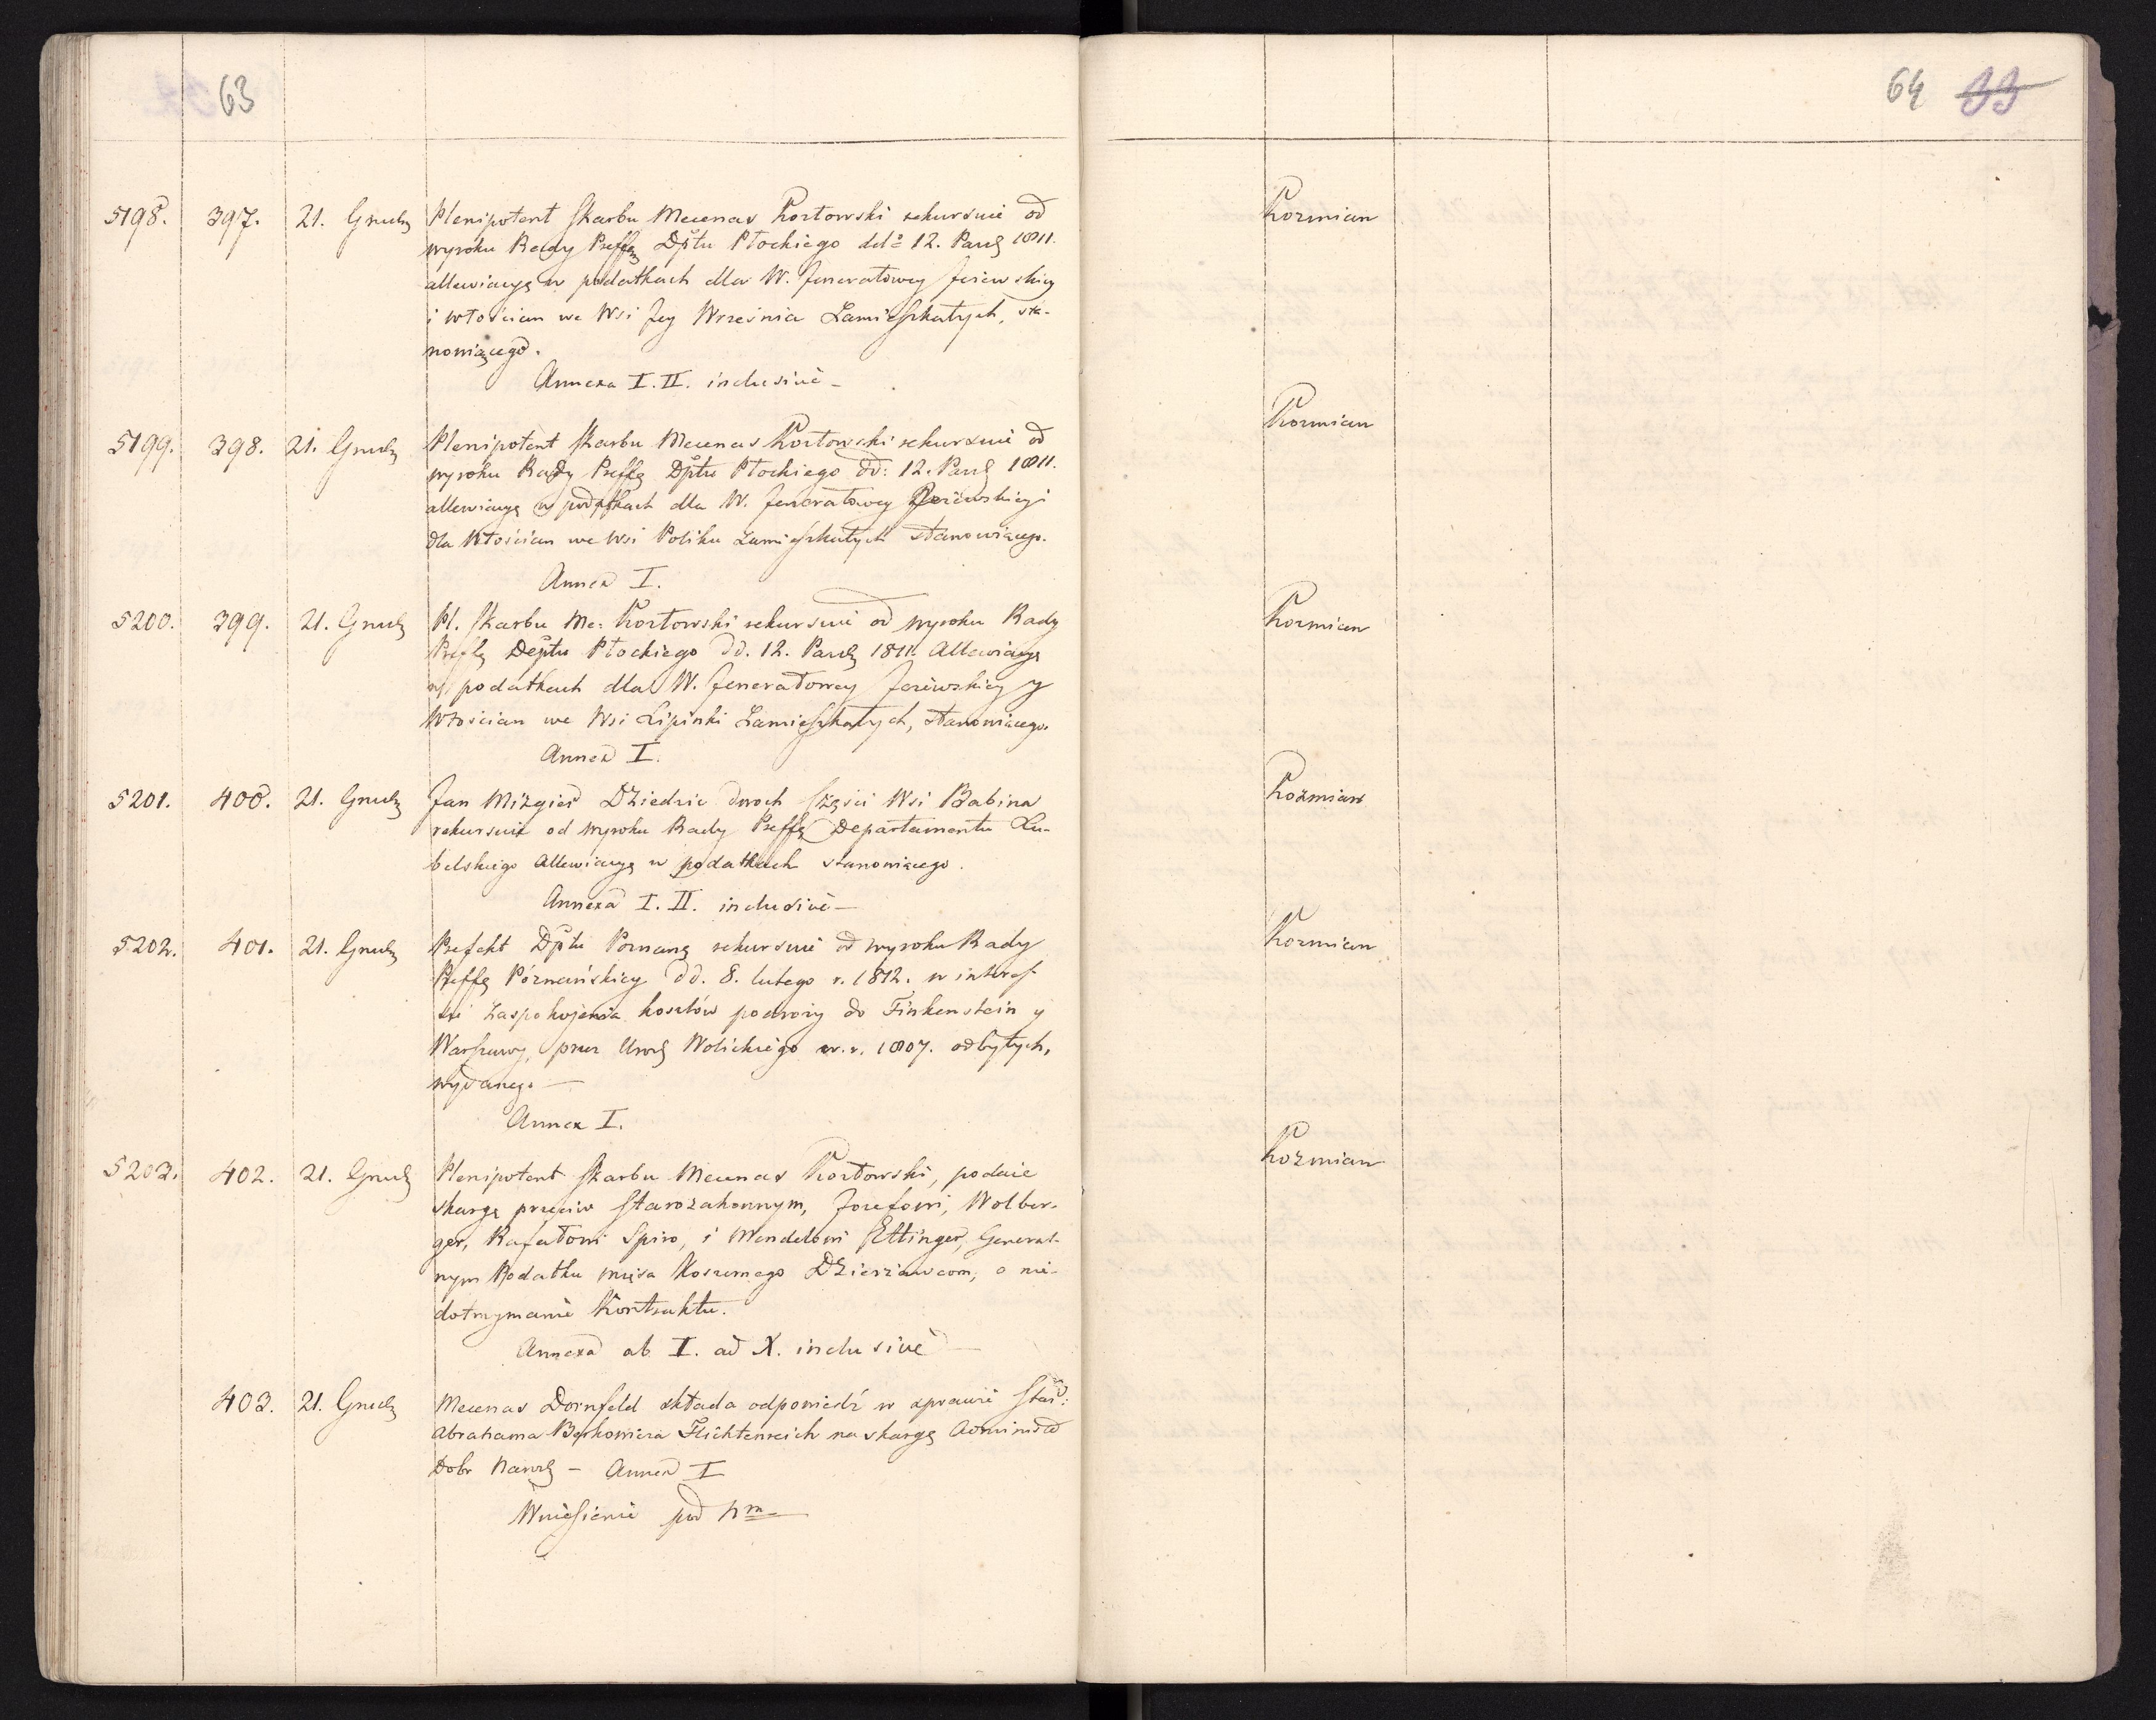 63
5198. 397. 21. Grudz Plenipotent Skarbu Mecenas Kozłowski rekursuie od
wyroku Rady Preffę Dptu Płockiego dd. 12. Paźdz 1811.
allewiacyę w podatkach dla W. Jenerałowey Jeżewskiey
i Włościan we Wsi Jey Września Zamieszkałych, sta-
nowiącego.
Annexa I. II. inclusivè –
5199. 398. 21. Grudz Plenipotent Skarbu Mecenas Kozłowski rekursuie od
wyroku Rady Preffę Dptu Płockiego dd: 12. Paźdz 1811.
allewiacyę w podatkach dla W. Jenerałowey Jeżewskiey i
dla Włościan we Wsi Poliku Zamieszkałych stanowiącego.
Annex I.
5200. 399. 21. Grudz Pl. Skarbu Me: Kozłowski rekursuie od wyroku Rady
Preffę Deptu Płockiego dd. 12. Paźdz 1811. Allewiacyę
w podatkach dla W. Jenerałowey Jeżewskiey y
Włościan we Wsi Lipinki Zamieszkałych, stanowiącego.
Annex I.
5201. 400. 21. Grudz Jan Mizgier Dziedzic dwóch części Wsi Babina
rekursuie od wyroku Rady Preffę Departamentu Lu-
belskiego Allewiacyę w podatkach stanowiącego.
Annexa I. II. inclusivè –
5202. 401. 21. Grudz Prefekt Dptu Poznanę rekursuie od wyroku Rady
Preffę Póznańskiey dd. 8. lutego r. 1812. w interes-
sie Zaspokojenia kosztów podróży do Finkenstein y
Warszawy, przez Wolickiego w. r. 1807. odbytych,
wydanego –
Annex I.
5203. 402. 21. Grudz Plenipotent Skarbu Mecenas Kozłowski, podaie
skargę przeciw Starozakonnym, Jozefowi, Wolber-
ger, Rafałowi Spiro, i Mendelowi Ettinger, Generał-
nym Podatku mięsa Koszernego Dzierżawcom, o nie-
dotrzymanie Kontraktu.
Annexa ab I. ad X. inclusivè –
403. 21. Grudz Mecenas Dornfeld składa odpowiedź w sprawie Star:
Abrahama Berkowicza Flichtenreich na skargę Administ
Dobr Narodz – Annex I
Wniesienie pod
64 33
Kozmian
Kozmian
Kozmian
Kozmian
Kozmian
Kozmian